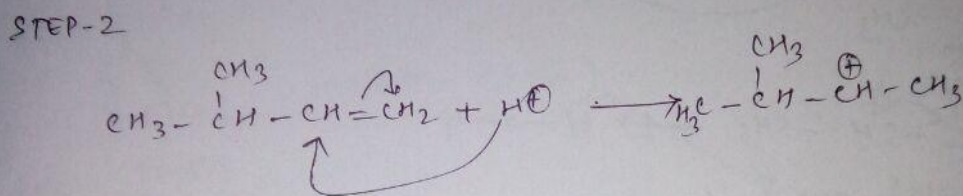 STEP-2
CH3 CH3
CH3 - CH - CH = CH2 + H⊕ ⟶ H3C - CH - CH - CH3
⊕